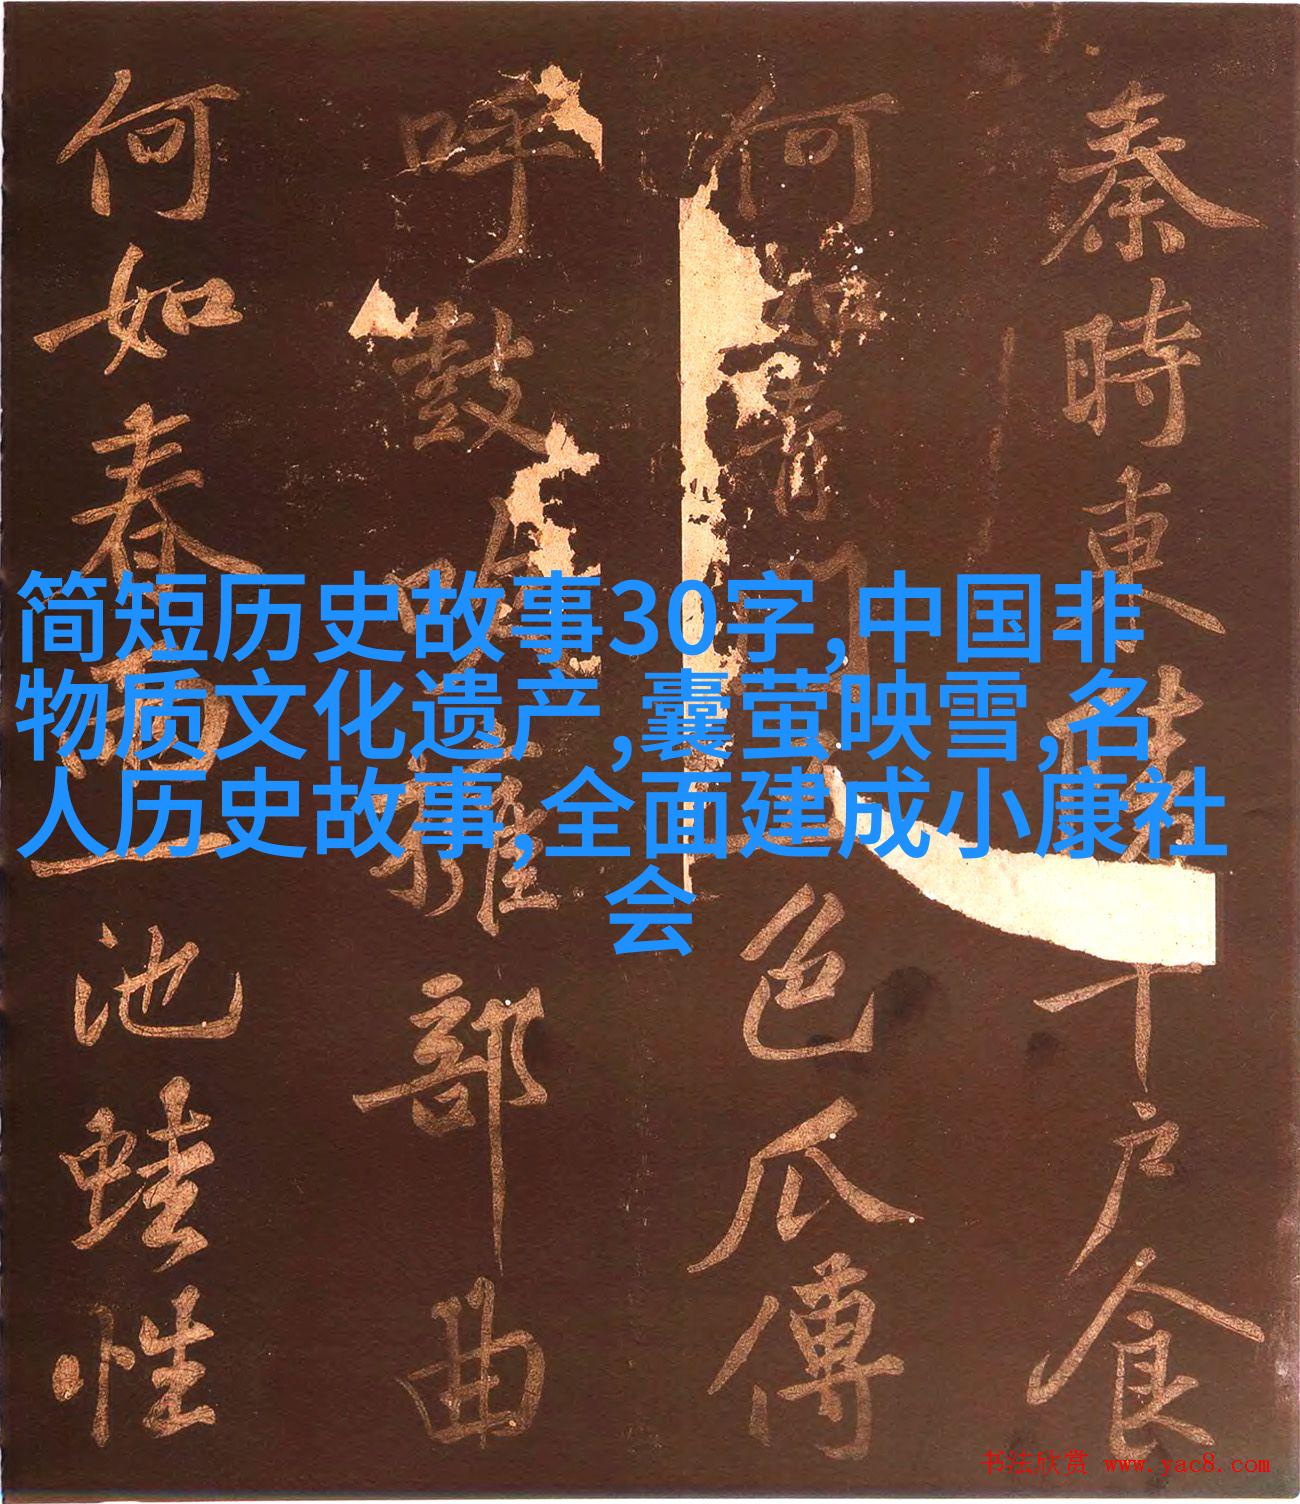 秦時東陵千戶食
何如青門五色瓜傳
呼鼓吹擁部曲
何如春雨一池蛙性
简短历史故事30字,中国非
物质文化遗产,囊萤映雪,名
人历史故事,全面建成小康社
会
书法欣赏 www.yac8.com